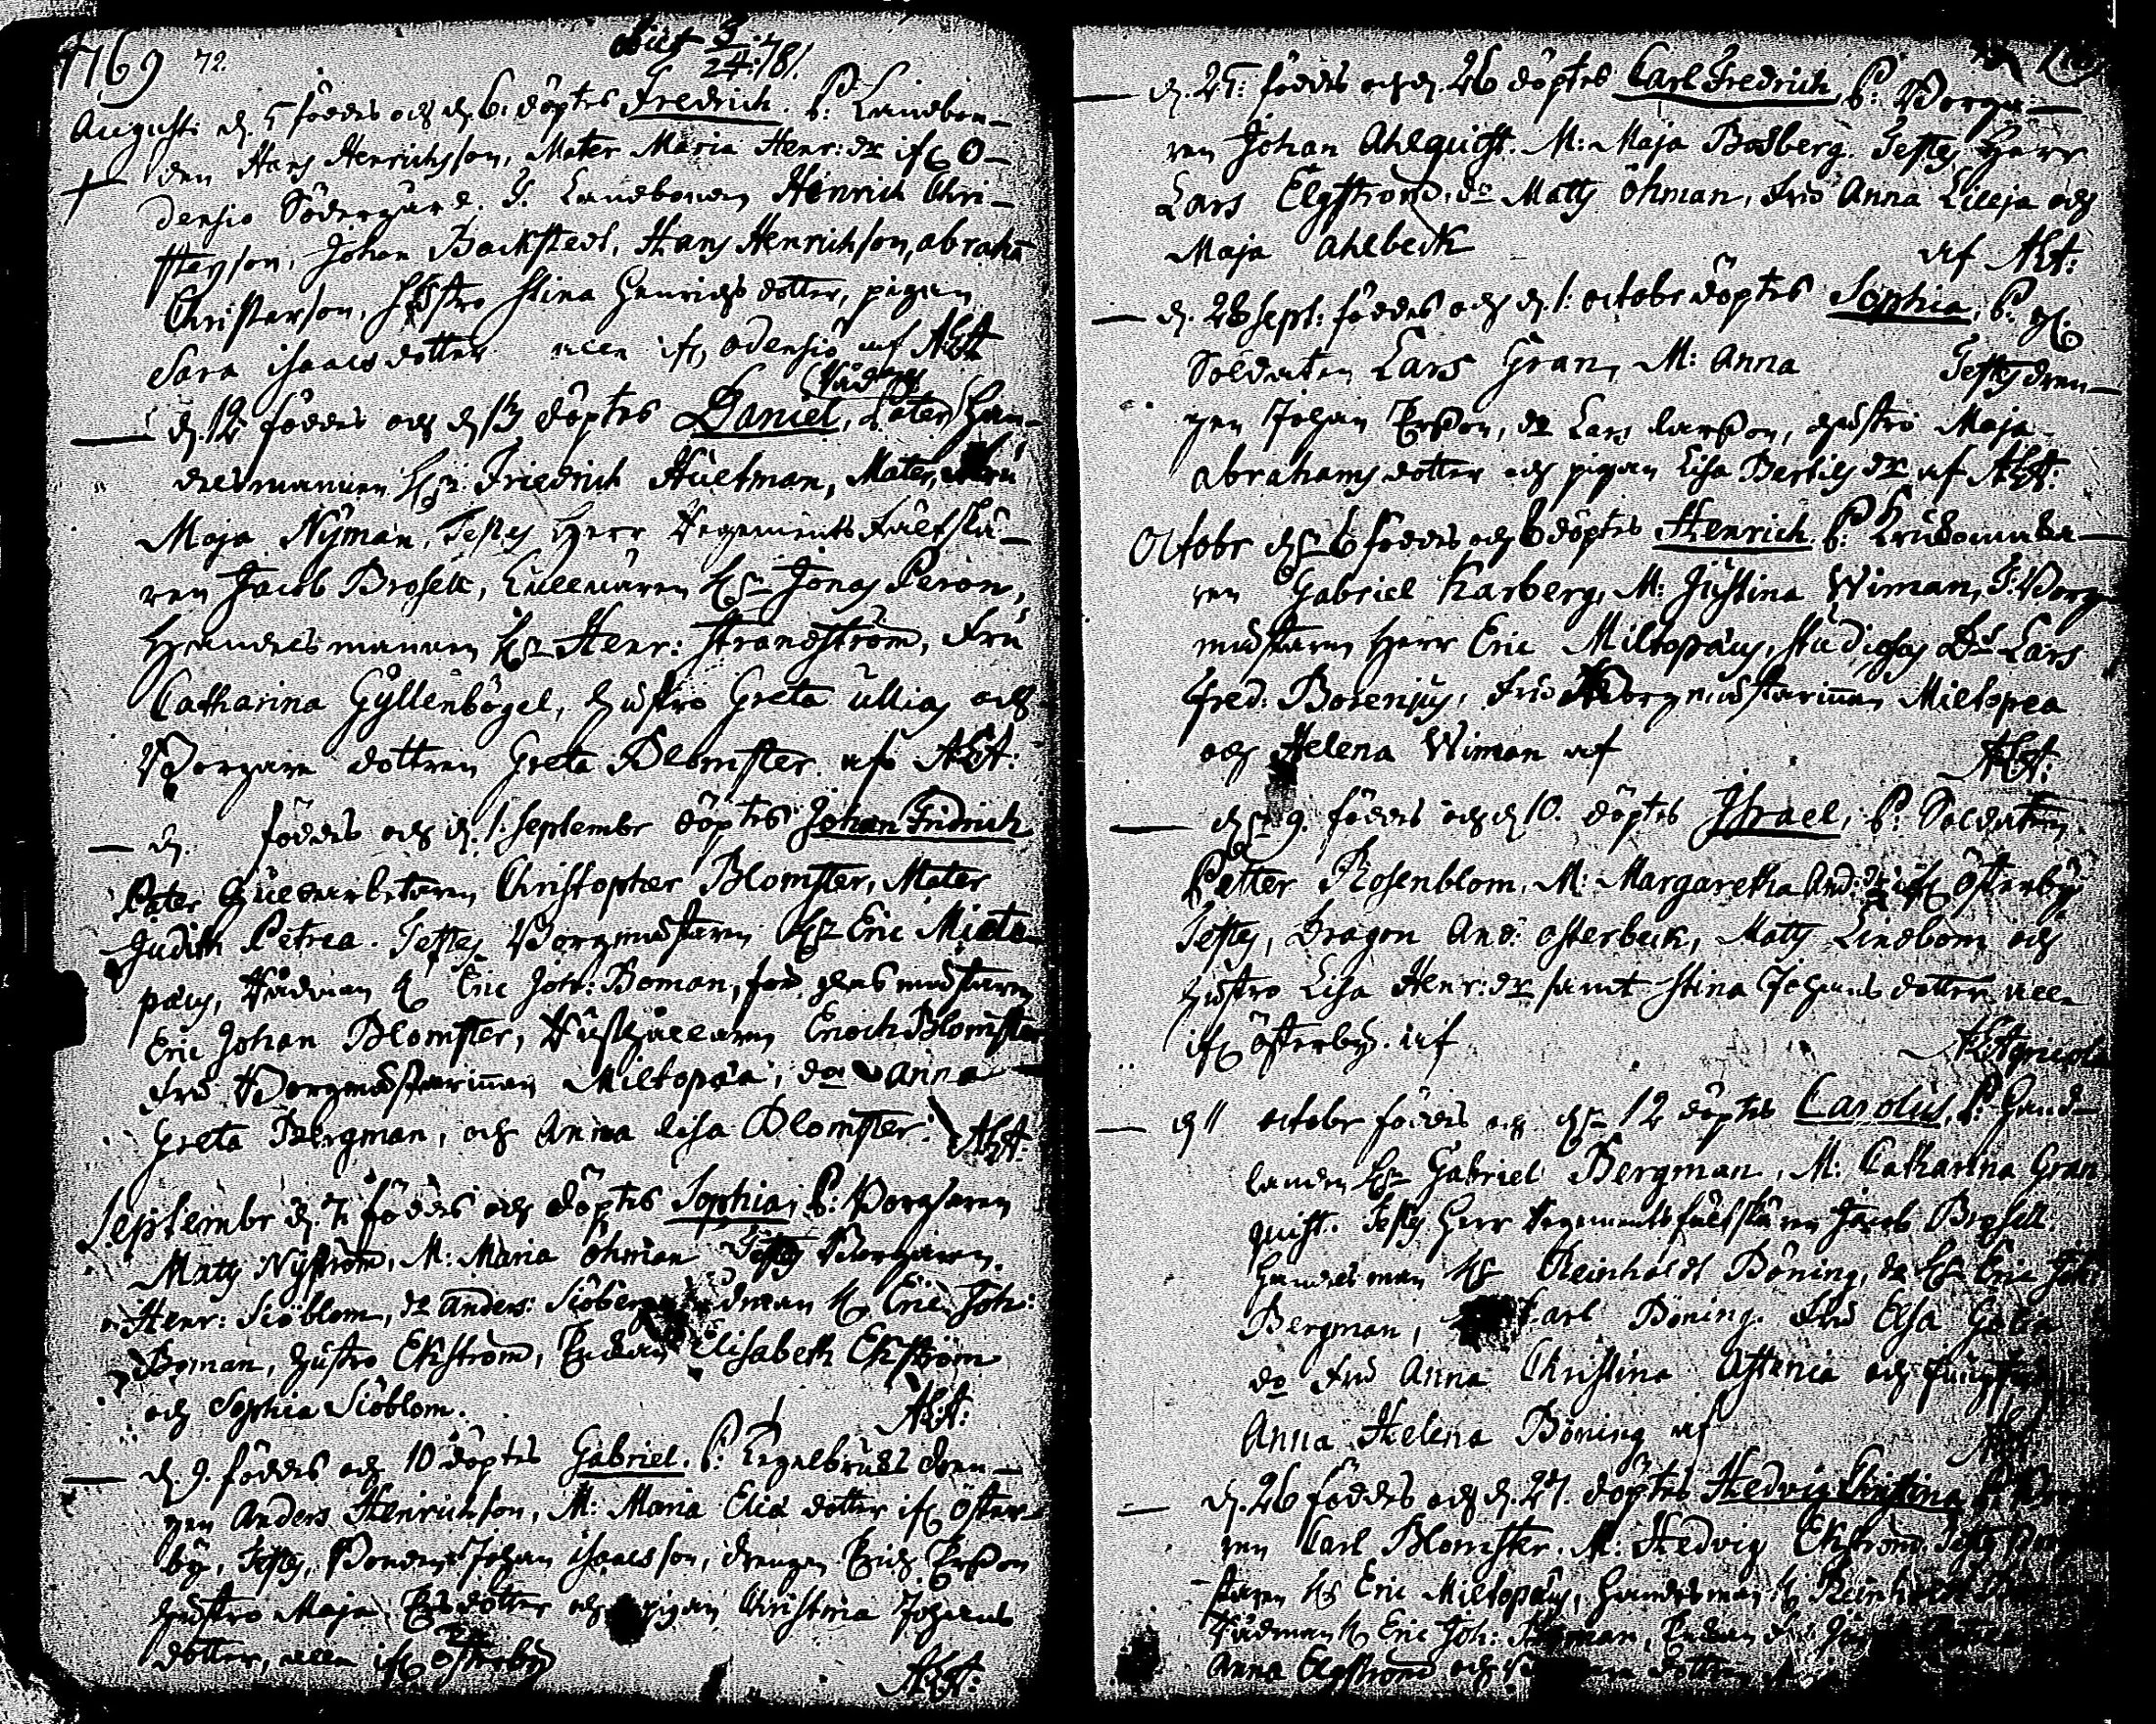 1769 72.
obiit 5/24 781.
Augusti d. 5 föddes och d. 6. döptes Fredrich. P: Landbon-
den Hans Henrichsson, Mater Maria Henr: dr ifr O-
densjo Södergård. T. Landbonden Henrich Chri-
stersson, Johan Backstedt, Hans Henrichson, Abrahã
Christerson, hustro Stina Henrichs dotter, pigan
Sara isaacs dotter alla ifr, Odensjo af AHA
Rådman
d. 12 föddes och d. 13 döptes Daniel, Pater Han-
delsmannen Hr: Friedrich Hueltman, Mater, Fru
Maja Nyman, Testes Herr Regements Fältskä-
ren Jacob Brosell, Cullevaren Hr Jonas Peron,
Handelsmannen Hr Henr: Strandström, Fru
Catharina Gyllenbögel, hustro Greta Ullias och
Borgare dottren Greta Blomster. af AHA:
d. föddes och d. 1. Septembr döptes Johan Fridrich
Pater Christopher Blomster, Mater
Judith Petrea. Testes Borgmästaren Hr Eric Mielto-
pæus, Rådman H Eric Joh: Boman, glasmästaren
Eric Johan Blomster, Enoch Blomster
Fru Borgmästarinnan Miltopæa, do Anna
Greta Bergman, och Anna Lisa Blomster. AHA:
Septembr d. 7. föddes och döptes Sophia, P: Borgaren
Matts Nyström, M: Maria Öhman Testes Borgaren
Henr: Siöblom, do Anders: Siöberg Rådman H Eric Joh:
Boman, hustro Ekström, Elisabeth Ekström
och Sophia Siöblom. AHA:
d. 9. föddes och 10 döptes Gabriel. P: Tegelbruks dren-
gen Anders Henrichson, M: Maria Elia dotter ifr Öster-
by, Testes, Bonden Johan isaacsson, drengen Erich Ersson
hustro Maja Ers dotter och pigan Christina Johans
dotter, alla ifr Österby AHA:
d. 25: föddes och d. 26 döptes Carl Fredrich, P: Borga-
ren Johan Ahlquist. M: Maja Bosberg. Testes Herr
Lars Elgström, do Matts Öhman, Fru Anna Lilleja och
Maja Ahlbeck af AHA:
d. 28 Sept: föddes och d. 1: Octobr döptes Sophia, P:
Soldaten Lars Gran, M: Anna Testes dren-
gen Johan Ersson, do Lars Larsson, hustro Maja
Abrahams dotter och pigan Lisa Bertils dr af AHA:
Octobr d. 6 föddes och 6 döptes Henrich. P:
ren Gabriel Karberg, M: Justina Wiman, T: Borg-
mästaren Herr Eric Miltopæus, Studiosus Dn Lars
Fred: Borenius, Fru Borgmästarinnan Mieltopea
och Helena Wiman af AHA:
d. 9. föddes och d. 10. döptes Israel, P: Soldaten
Petter Rosenblom, M: Margaretha And: dr ifr Österby
Testes, Dragon And: Österbeck, Matts Lindbom och
hustro Lisa Henr: dr samt Stina Johans dotter alla
ifr Österby. af AHAgricola
d 11 Octobr föddes och d. 12 döptes Carolus, P: Hand-
landen Hr Gabriel Bergman, M: Catharina Gran
quist. Testes Herr Regements fältskären Jacob Brosell.
Handelsman Hr Reinholdt Böning, do Hr Eric Joh:
Bergman, Carl Böning. Fru Elsa
do Fru Anna Christina Astenia och Jungfru
Anna Helena Böning af AHA
d. 26 föddes och d. 27. döptes Hedvig Christina P: Borga-
ren Carl Blomster. M: Hedvig Ekström. Testes Borgmä-
staren Hr Eric Miltopæus, Handelsman H Reinholdt
Rådman H Eric Joh: Boman,
Anna Elgström och dotter